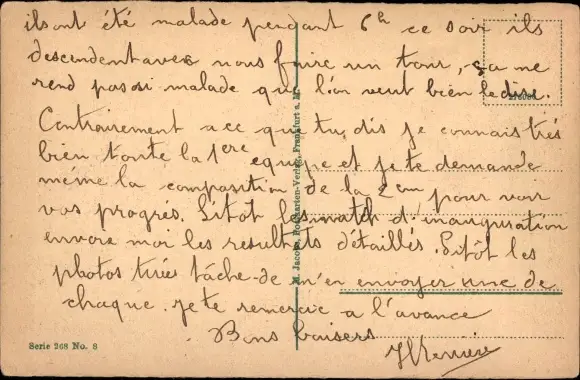 ils ont été malade pendant 6h ce soir ils
descendent avec nous faire un tour, ça me
rend pas si malade que l'on veut bien le dire.
Contrairement a ce que tu dis je connais très
bien toute la 1ere equipe et je te demande
même la composition de la 2em pour voir
vos progrés. Sitôt les match d'inauguration
envoie moi les resultats détaillés. Sitôt les
photos tirée tâche-de m'en envoyer une de
chaque. je te remercie a l'avance
Bons baisers
M. Jacobs, Postkarten-Verlag, Frankfurt a. M.
Serie 268 No. 8